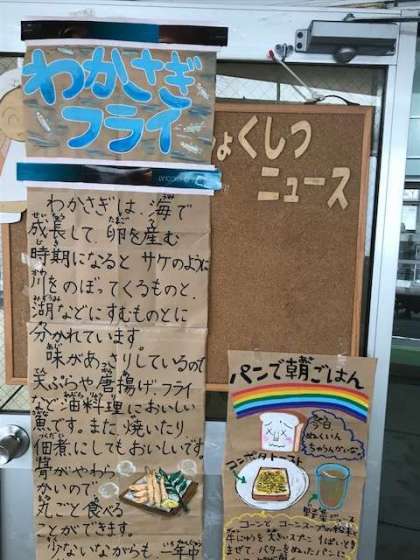 わかさぎ
フライ
ょくしつ
ニュース
わかさぎは、海で
成長して、卵を産む
時期になるとサケのように
川をのぼってくるものと、
湖などにすむものとに
分かれています。
味があっさりしているので
天ぷらや唐揚げ、フライ
など油料理においしい
魚です。また焼いたり
佃煮にしてもおいしいです。
骨がやわら
かいので
丸ごと食べる
ことができます。
少ないながらも、一年中
パンで朝ごはん
今日
コーンポタトースト
コーンとコーンスープの粉と
まぜて、バターをぬったパンと